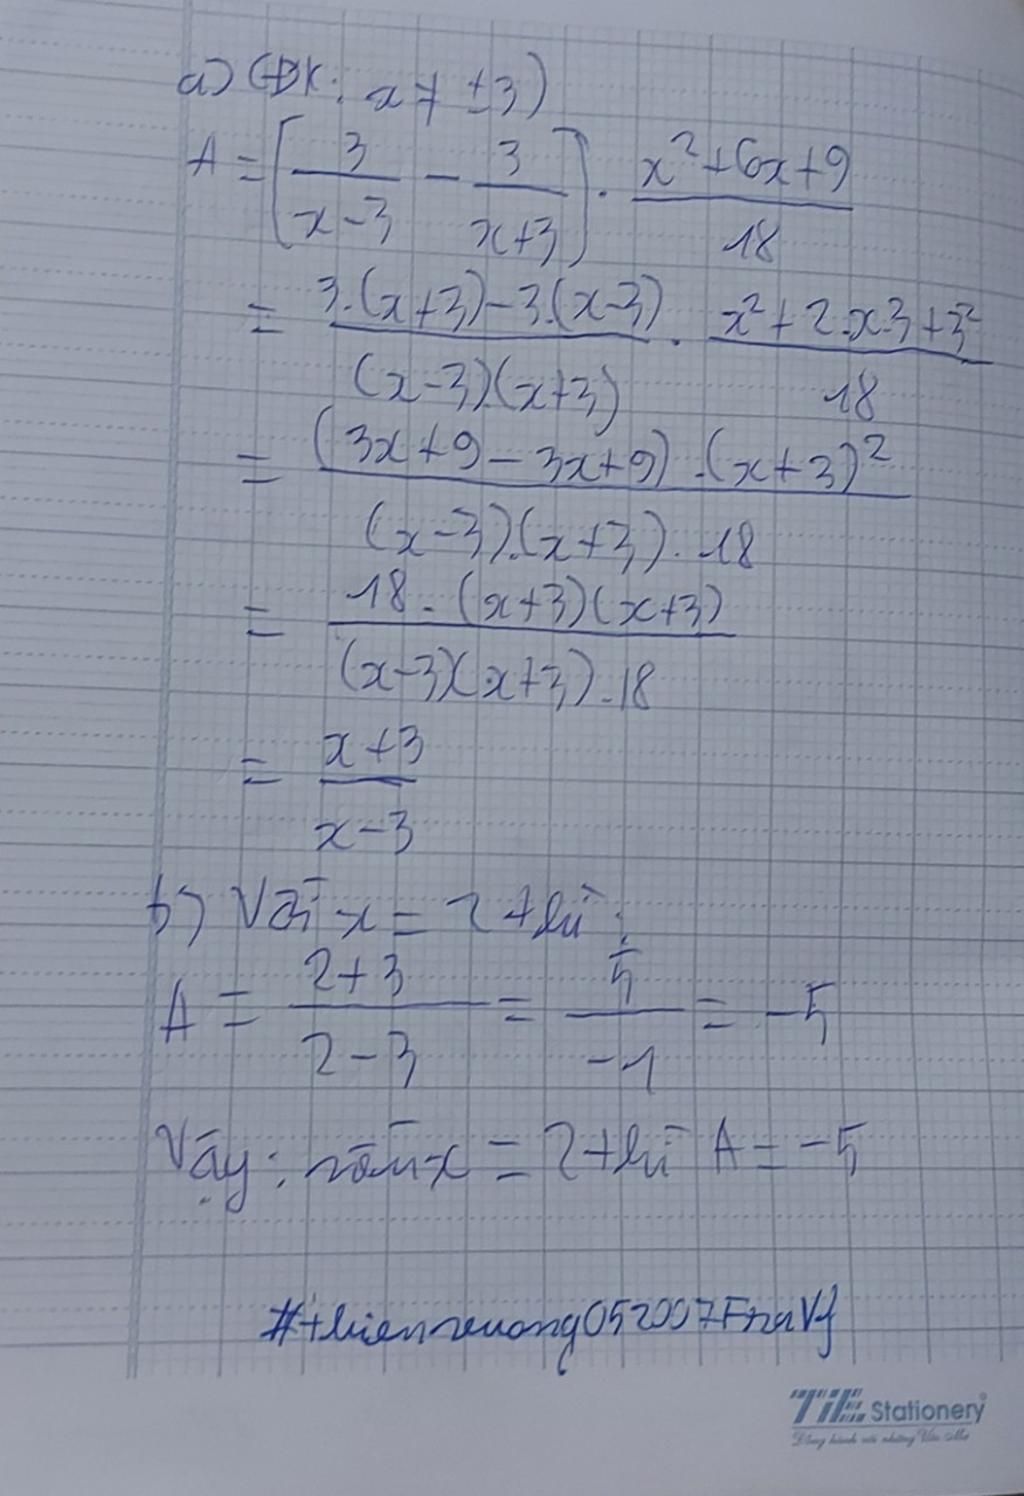 a) (ĐK: x ≠ ±3)
A = [3/(x-3) - 3/(x+3)] . (x²+6x+9)/18
= (3.(x+3)-3.(x-3))/((x-3).(x+3)) . (x²+2.x.3+3²)/18
= ((3x+9-3x+9).(x+3)²)/((x-3).(x+3).18)
= (18.(x+3)(x+3))/((x-3)(x+3).18)
= (x+3)/(x-3)
b) Với x = 2 thì:
A = (2+3)/(2-3) = 5/-1 = -5
Vậy: x = 2 thì A = -5
TiE Stationery